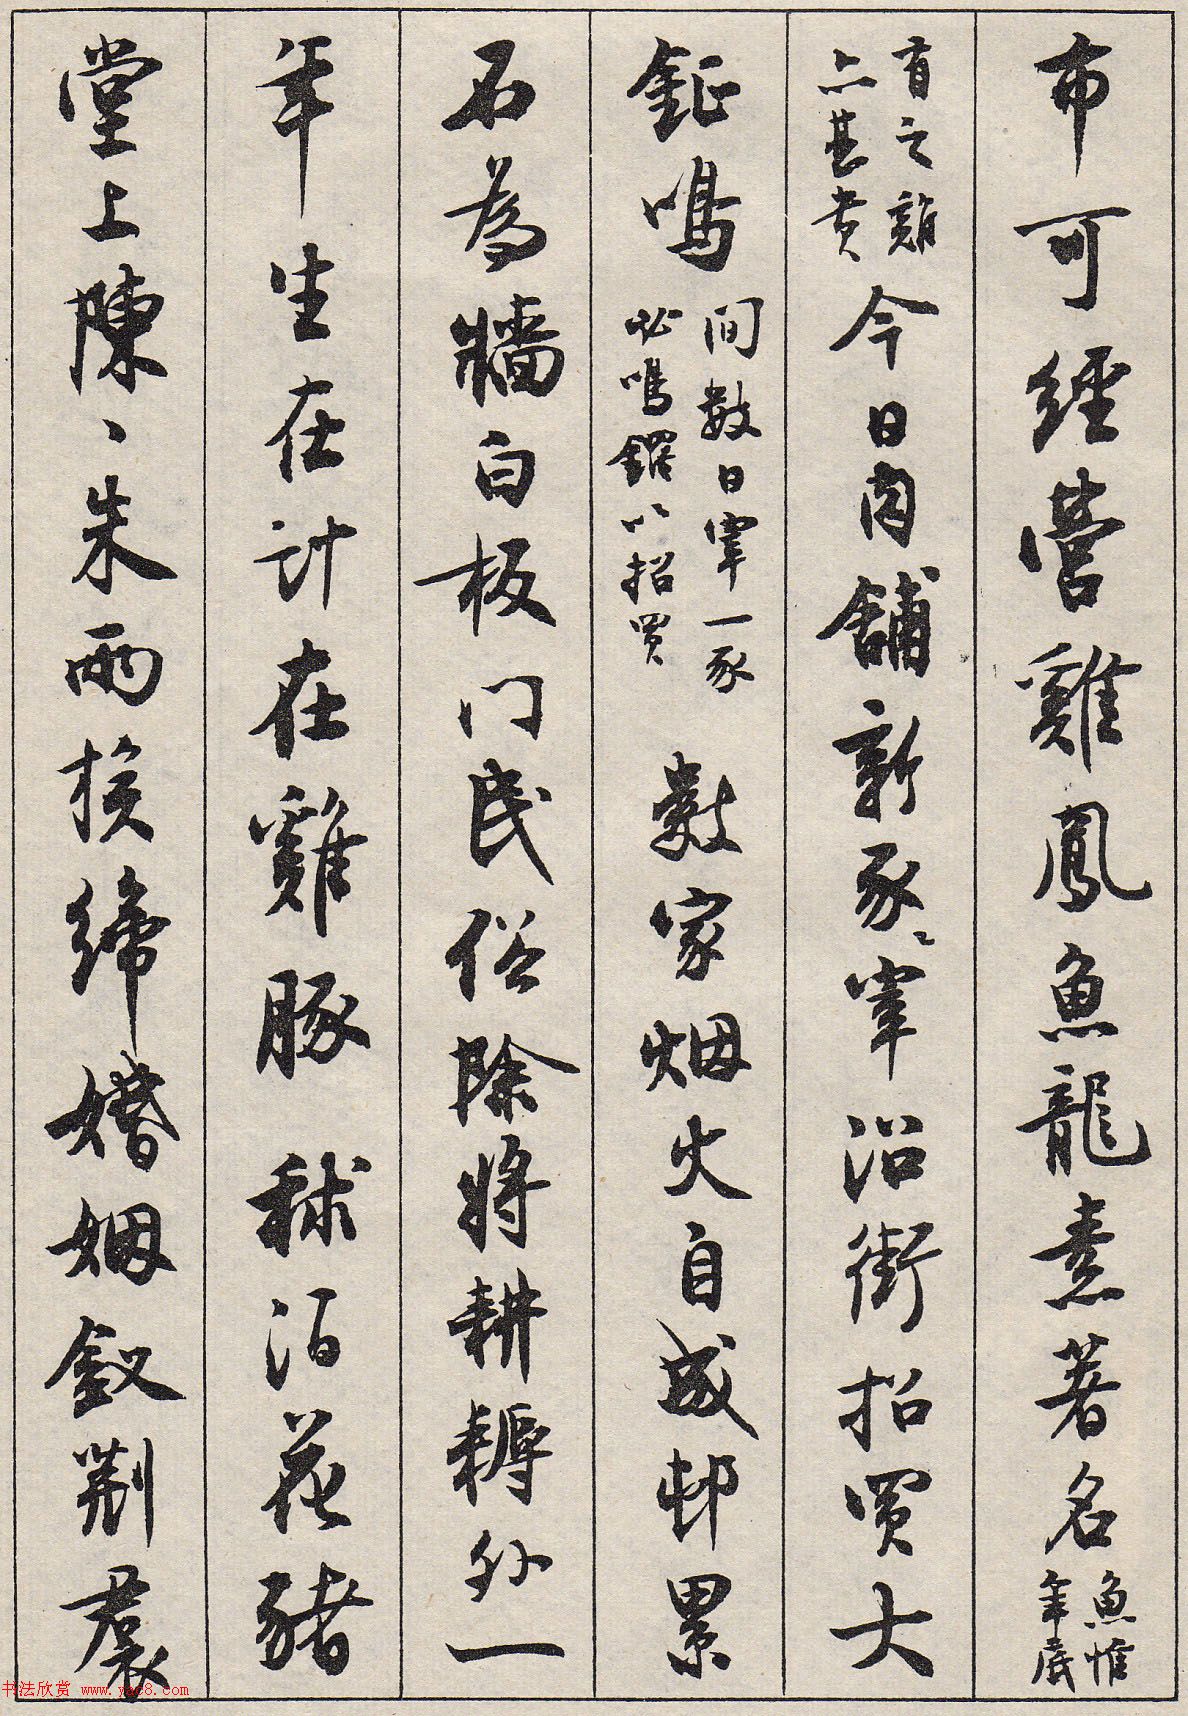 布可經營雞鳳魚龍素著名魚惟年底
有之雞亦甚貴今日肉舖新豕〻宰沿街招買大
鉦鳴間數日宰一豕必鳴鑼以招買數家烟火自成邨累
石為牆白板門民俗除將耕耨外一
年生在計在雞豚秫酒花豬
堂上陳〻朱兩接締婚姻釵荆裙
书法欣赏 www.yac8.com